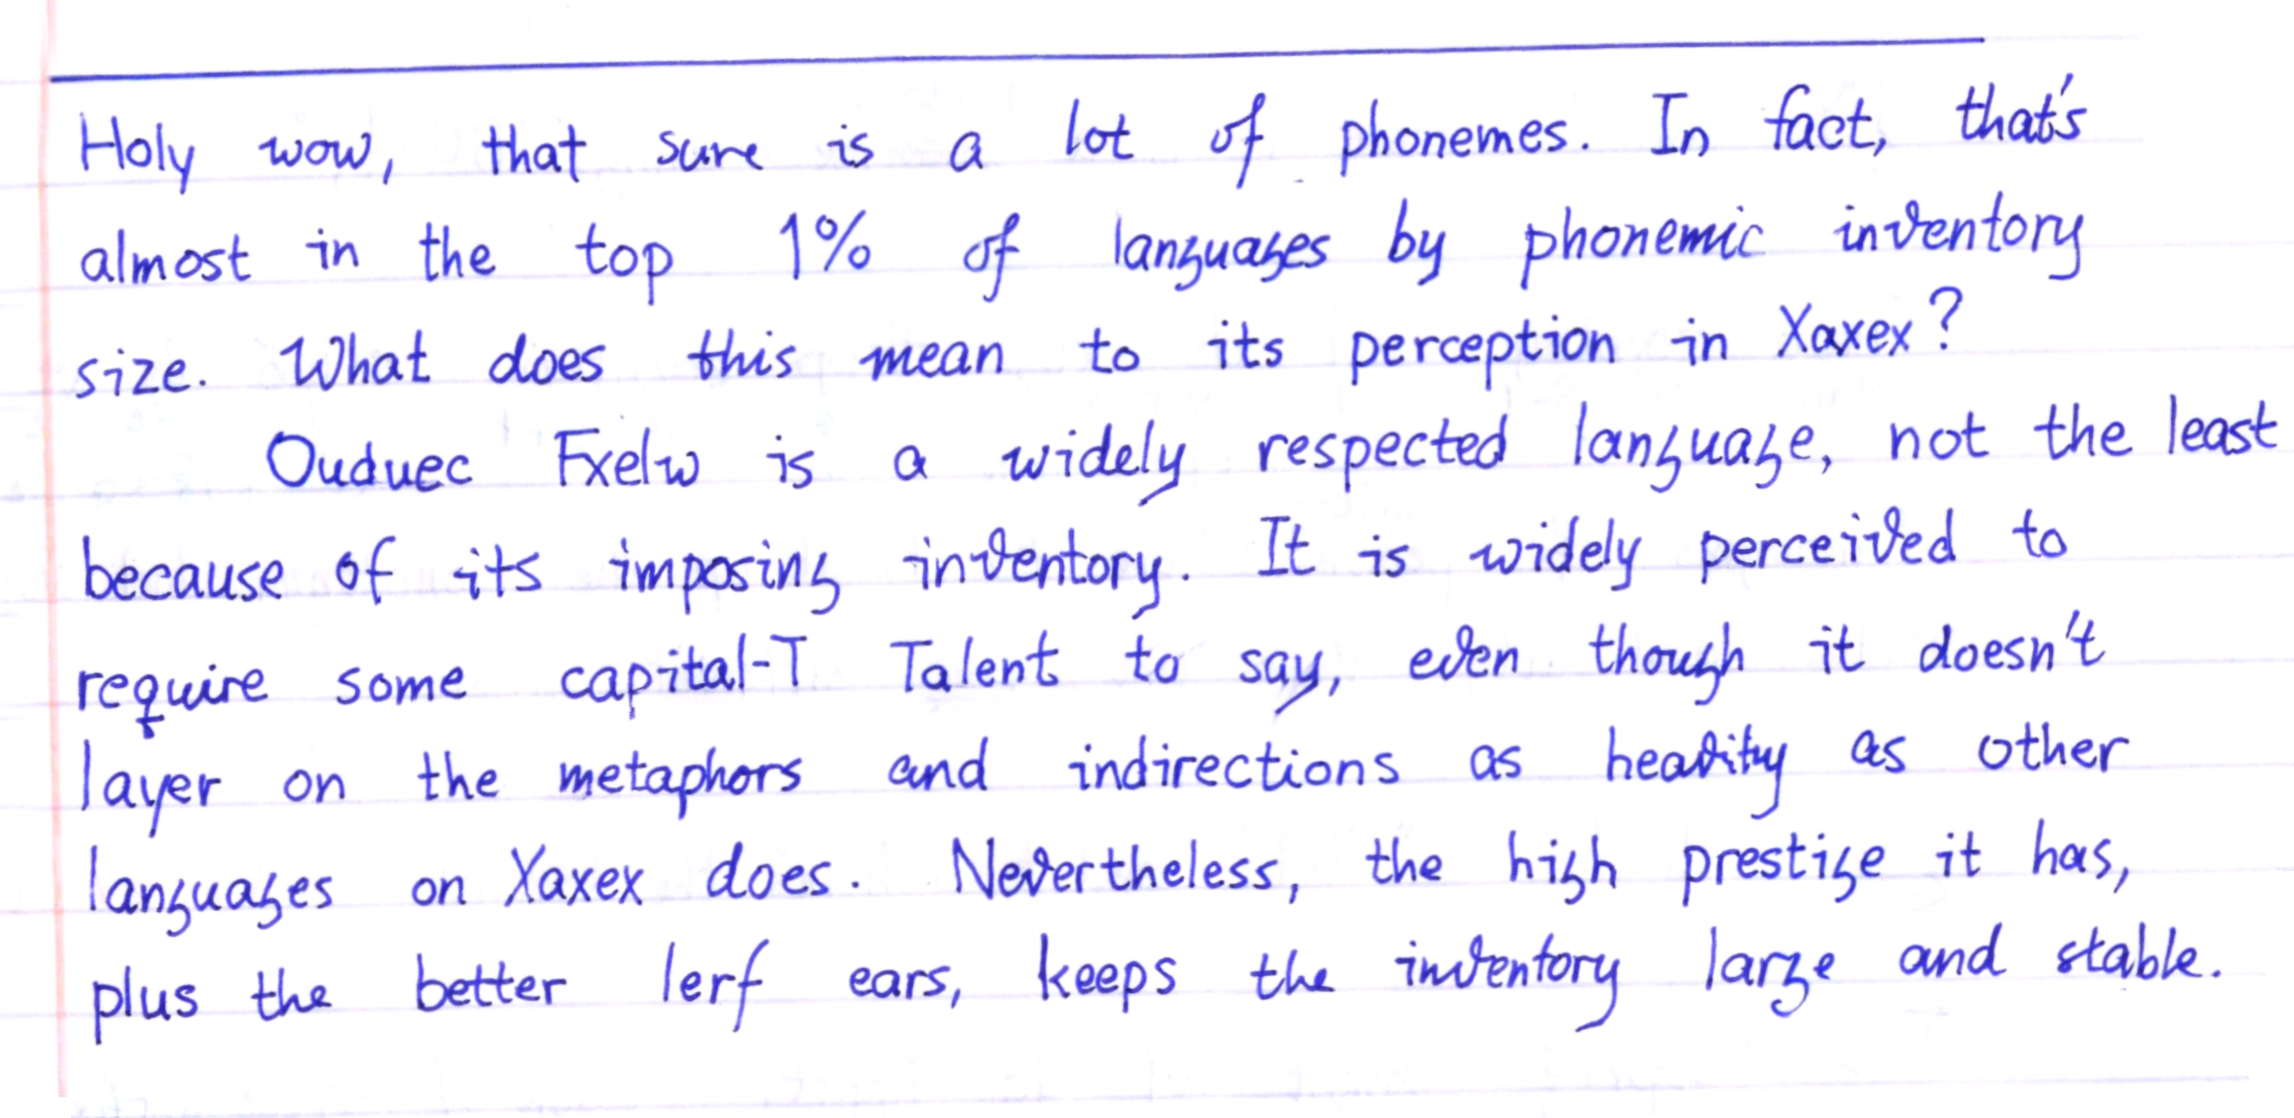 Holy wow, that sure is a lot of phonemes. In fact, that's
almost in the top 1% of languages by phonemic inventory
size. What does this mean to its perception in Xaxex?
Ouduec Fxelw is a widely respected language, not the least
because of its imposing inventory. It is widely perceived to
require some capital-T Talent to say, even though it doesn't
layer on the metaphors and indirections as heavily as other
languages on Xaxex does. Nevertheless, the high prestige it has,
plus the better lerf ears, keeps the inventory large and stable.